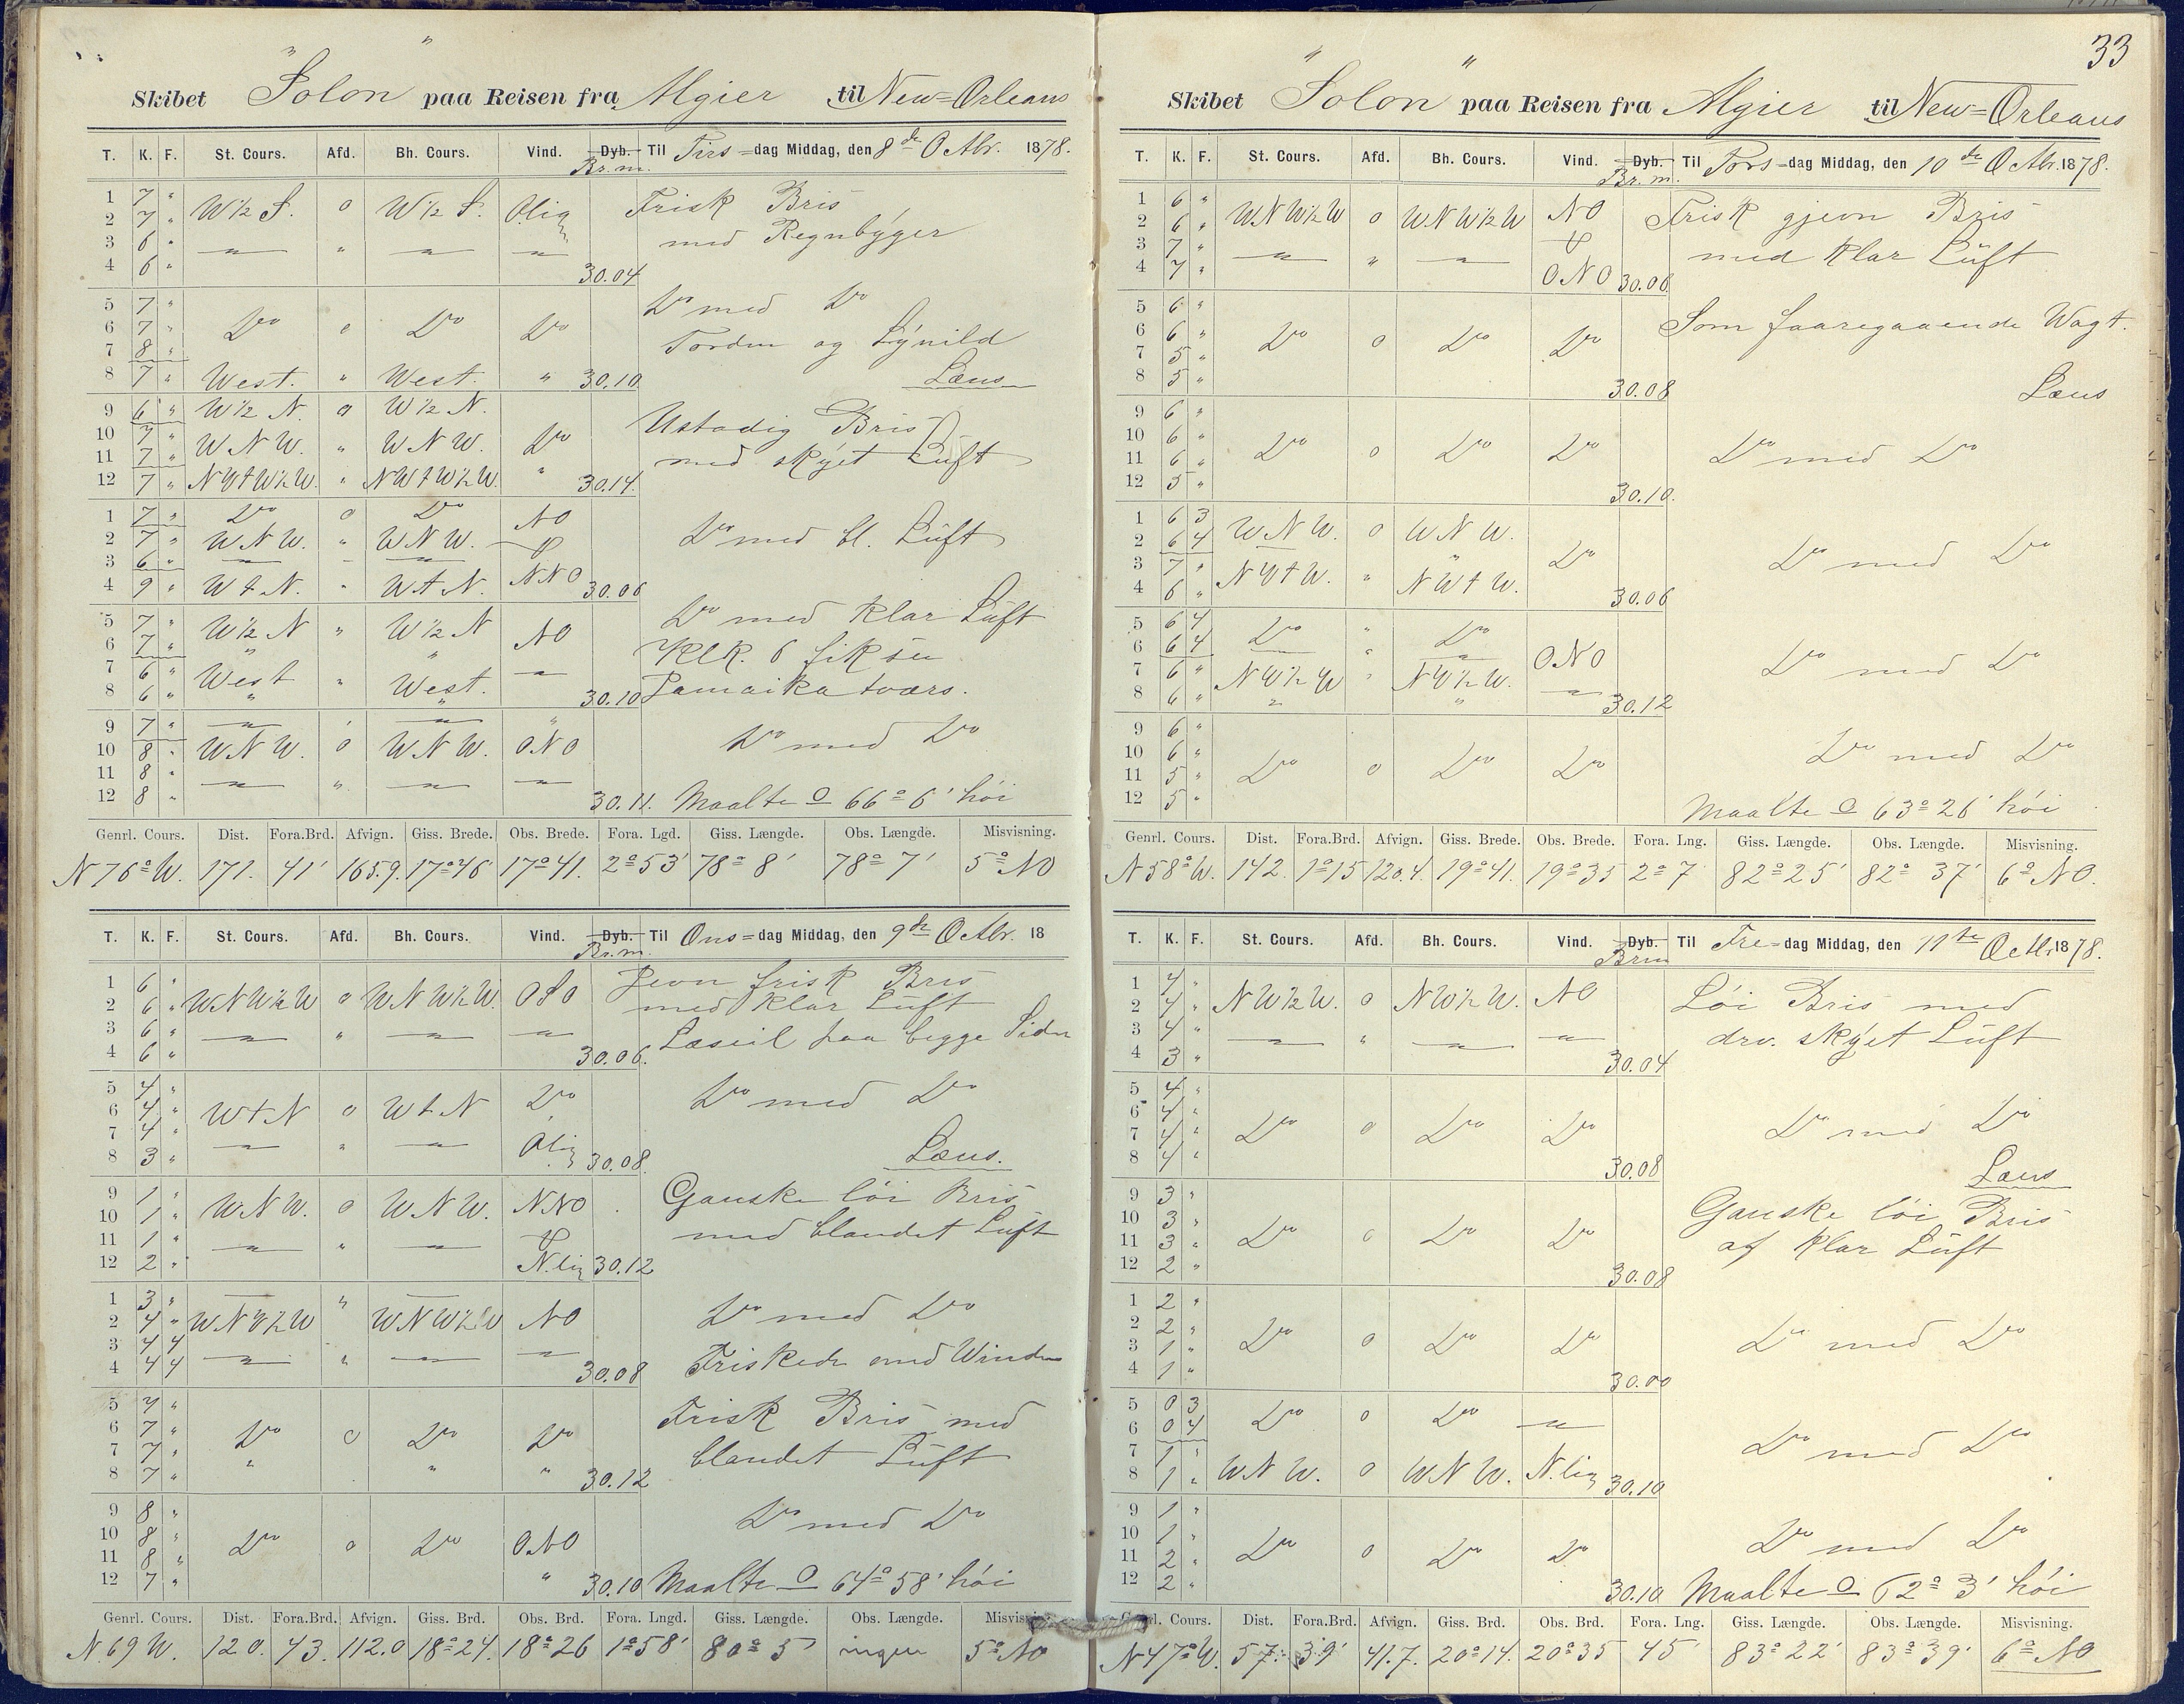 33
Skibet "Solon" paa Reisen fra Algier til New=Orleans
T. K. F. St. Cours. Afd. Bh. Cours. Vind. Dyb. Br.m. Til Tirs=dag Middag, den 8de Octbr. 1878.
1 7 "
2 7 " W½S. 0 W½S. Ølig Frisk Bris
3 6 " — " — — med Regnbÿger
4 6 " 30.04
5 7 " Do med Do
6 7 " Do 0 Do Do
7 8 " Torden og Lÿnild
8 7 " West. " West. " 30.10. Læns
9 6 " W½N. 0 W½N.
10 7 " WNW. " WNW. Do Ustadig Bris
11 7 " med skÿet Lüft
12 7 " NWtW½W. " NWtW½W. " 30.14.
1 7 " Do 0 Do NO
2 7 " WNW. " WNW. Do med bl. Lüft
3 6 " — - —
4 9 " WtN. " WtN. NNO 30.06
5 7 " W½N " W½N NO Do med klar Lüft
6 7 " " " Klk. 6 fik øen
7 6 " West " West. —
8 6 " " " 30.10 Jamaika tværs.
9 7 " — — "
10 8 " WNW. 0 WNW. ONO Do med Do
11 8 "
12 8 " — " — — 30.11. Maalte O 66° 6' høi
Genrl. Cours. Dist. Fora.Brd. Afvign. Giss. Brede. Obs. Brede. Fora. Lgd. Giss. Længde. Obs. Længde. Misvisning.
N76°W. 171. 41' 165.9. 17°46' 17°41. 2°53' 78° 8' 78° 7' 5° NO
T. K. F. St. Cours. Afd. Bh. Cours. Vind. Dyb. Br.m. Til Ons=dag Middag, den 9de Octbr. 18
1 6 " Jevn frisk Bris
2 6 " WNW½W 0 WNW½W. OSO med klar Lüft
3 6 " — " — — Læseil paa begge Sider
4 6 " 30.06.
5 4 "
6 4 " WtN 0 WtN Do Do med Do
7 4 "
8 3 " — " — Ølig 30.08. Læns.
9 1 " Ganske løi Bris
10 1 " WNW. 0 WNW. NNO
11 1 " — " — med blandet Lüft
12 2 " N.lig 30.12
1 3 "
2 4 " WNW½W " WNW½W NO Do med Do
3 4 4
4 4 4 — " — — 30.08 Friskede med Vinden
5 7 " Frisk Bris med
6 7 " Do 0 Do Do
7 7 " blandet Lüft
8 7 " " " " 30.12
9 8 " Do med Do
10 8 " Do 0 Do ONO
11 8 "
12 7 " " 30.10 Maalte O 64° 58' høi
Genrl. Cours. Dist. Fora.Brd. Afvign. Giss. Brd. Obs. Brd. Fora. Lngd. Giss. Længde. Obs. Længde. Misvisning.
N.69 W. 120. 43. 112.0 18°24. 18°26 1°58' 80° 5' ingen 5° NO
Skibet "Solon" paa Reisen fra Algier til New=Orleans
T. K. F. St. Cours. Afd. Bh. Cours. Vind. Dyb. Br.m. Til Tors=dag Middag, den 10de Octbr. 1878.
1 6 "
2 6 " WNW½W 0 WNW½W NO Frisk gjevn Bris
3 7 " — " — med klar Lüft
4 7 " ONO 30.06
5 6 " Som foaregaaende Wagt.
6 6 " Do 0 Do Do
7 5 "
8 5 " 30.08 Læns
9 6 "
10 6 " Do 0 Do Do Do med Do
11 6 "
12 5 " 30.10.
1 6 3
2 6 4 WNW. 0 WNW.
3 7 " " Do Do med Do
4 6 " NWtW. " NWtW. 30.06
5 6 4 Do " Do
6 6 4 — " — ONO Do med Do
7 6 " NW½W " NW½W.
8 6 " " " — 30.12
9 6 "
10 6 " Do med Do
11 5 " Do 0 Do Do
12 5 " Maalte O 63° 26' høi
Genrl. Cours. Dist. Fora.Brd. Afvign. Giss. Brede. Obs. Brede. Fora. Lng. Giss. Længde. Obs. Længde. Misvisning.
N58°W. 142. 1°15 120.4. 19°41. 19°35 2° 7 82° 25' 82° 37' 6° NO.
T. K. F. St. Cours. Afd. Bh. Cours. Vind. Dyb. Brm Til Fre=dag Middag, den 11te Octbr 1878.
1 4 "
2 4 " NW½W. 0 NW½W. NO Løi Bris med
3 4 " — " — — drv. skÿet Lüft
4 3 " 30.04
5 4 "
6 4 " Do 0 Do Do Do med Do
7 4 "
8 4 " 30.08 Læns
9 3 " Ganske løi Bris
10 3 "
11 3 " Do 0 Do Do af klar Lüft
12 2 " 30.08
1 2 "
2 2 " Do 0 Do Do Do med Do
3 1 "
4 1 " 30.00
5 0 3 Do 0 Do —
6 0 4 Do med Do
7 1 "
8 1 " WNW. 0 WNW. N.lig 30.10
9 1 "
10 1 " Do 0 Do Do Do med Do
11 2 "
12 2 " 30.10 Maalte O 62° 3' høi
Genrl. Cours. Dist. Fora.Brd. Afvign. Giss. Brd. Obs. Brd. Fora. Lng. Giss. Længde. Obs. Længde. Misvisning.
N47°W. 57. 39' 41.7. 20°14. 20°35 45' 83° 22' 83° 39' 6° NO